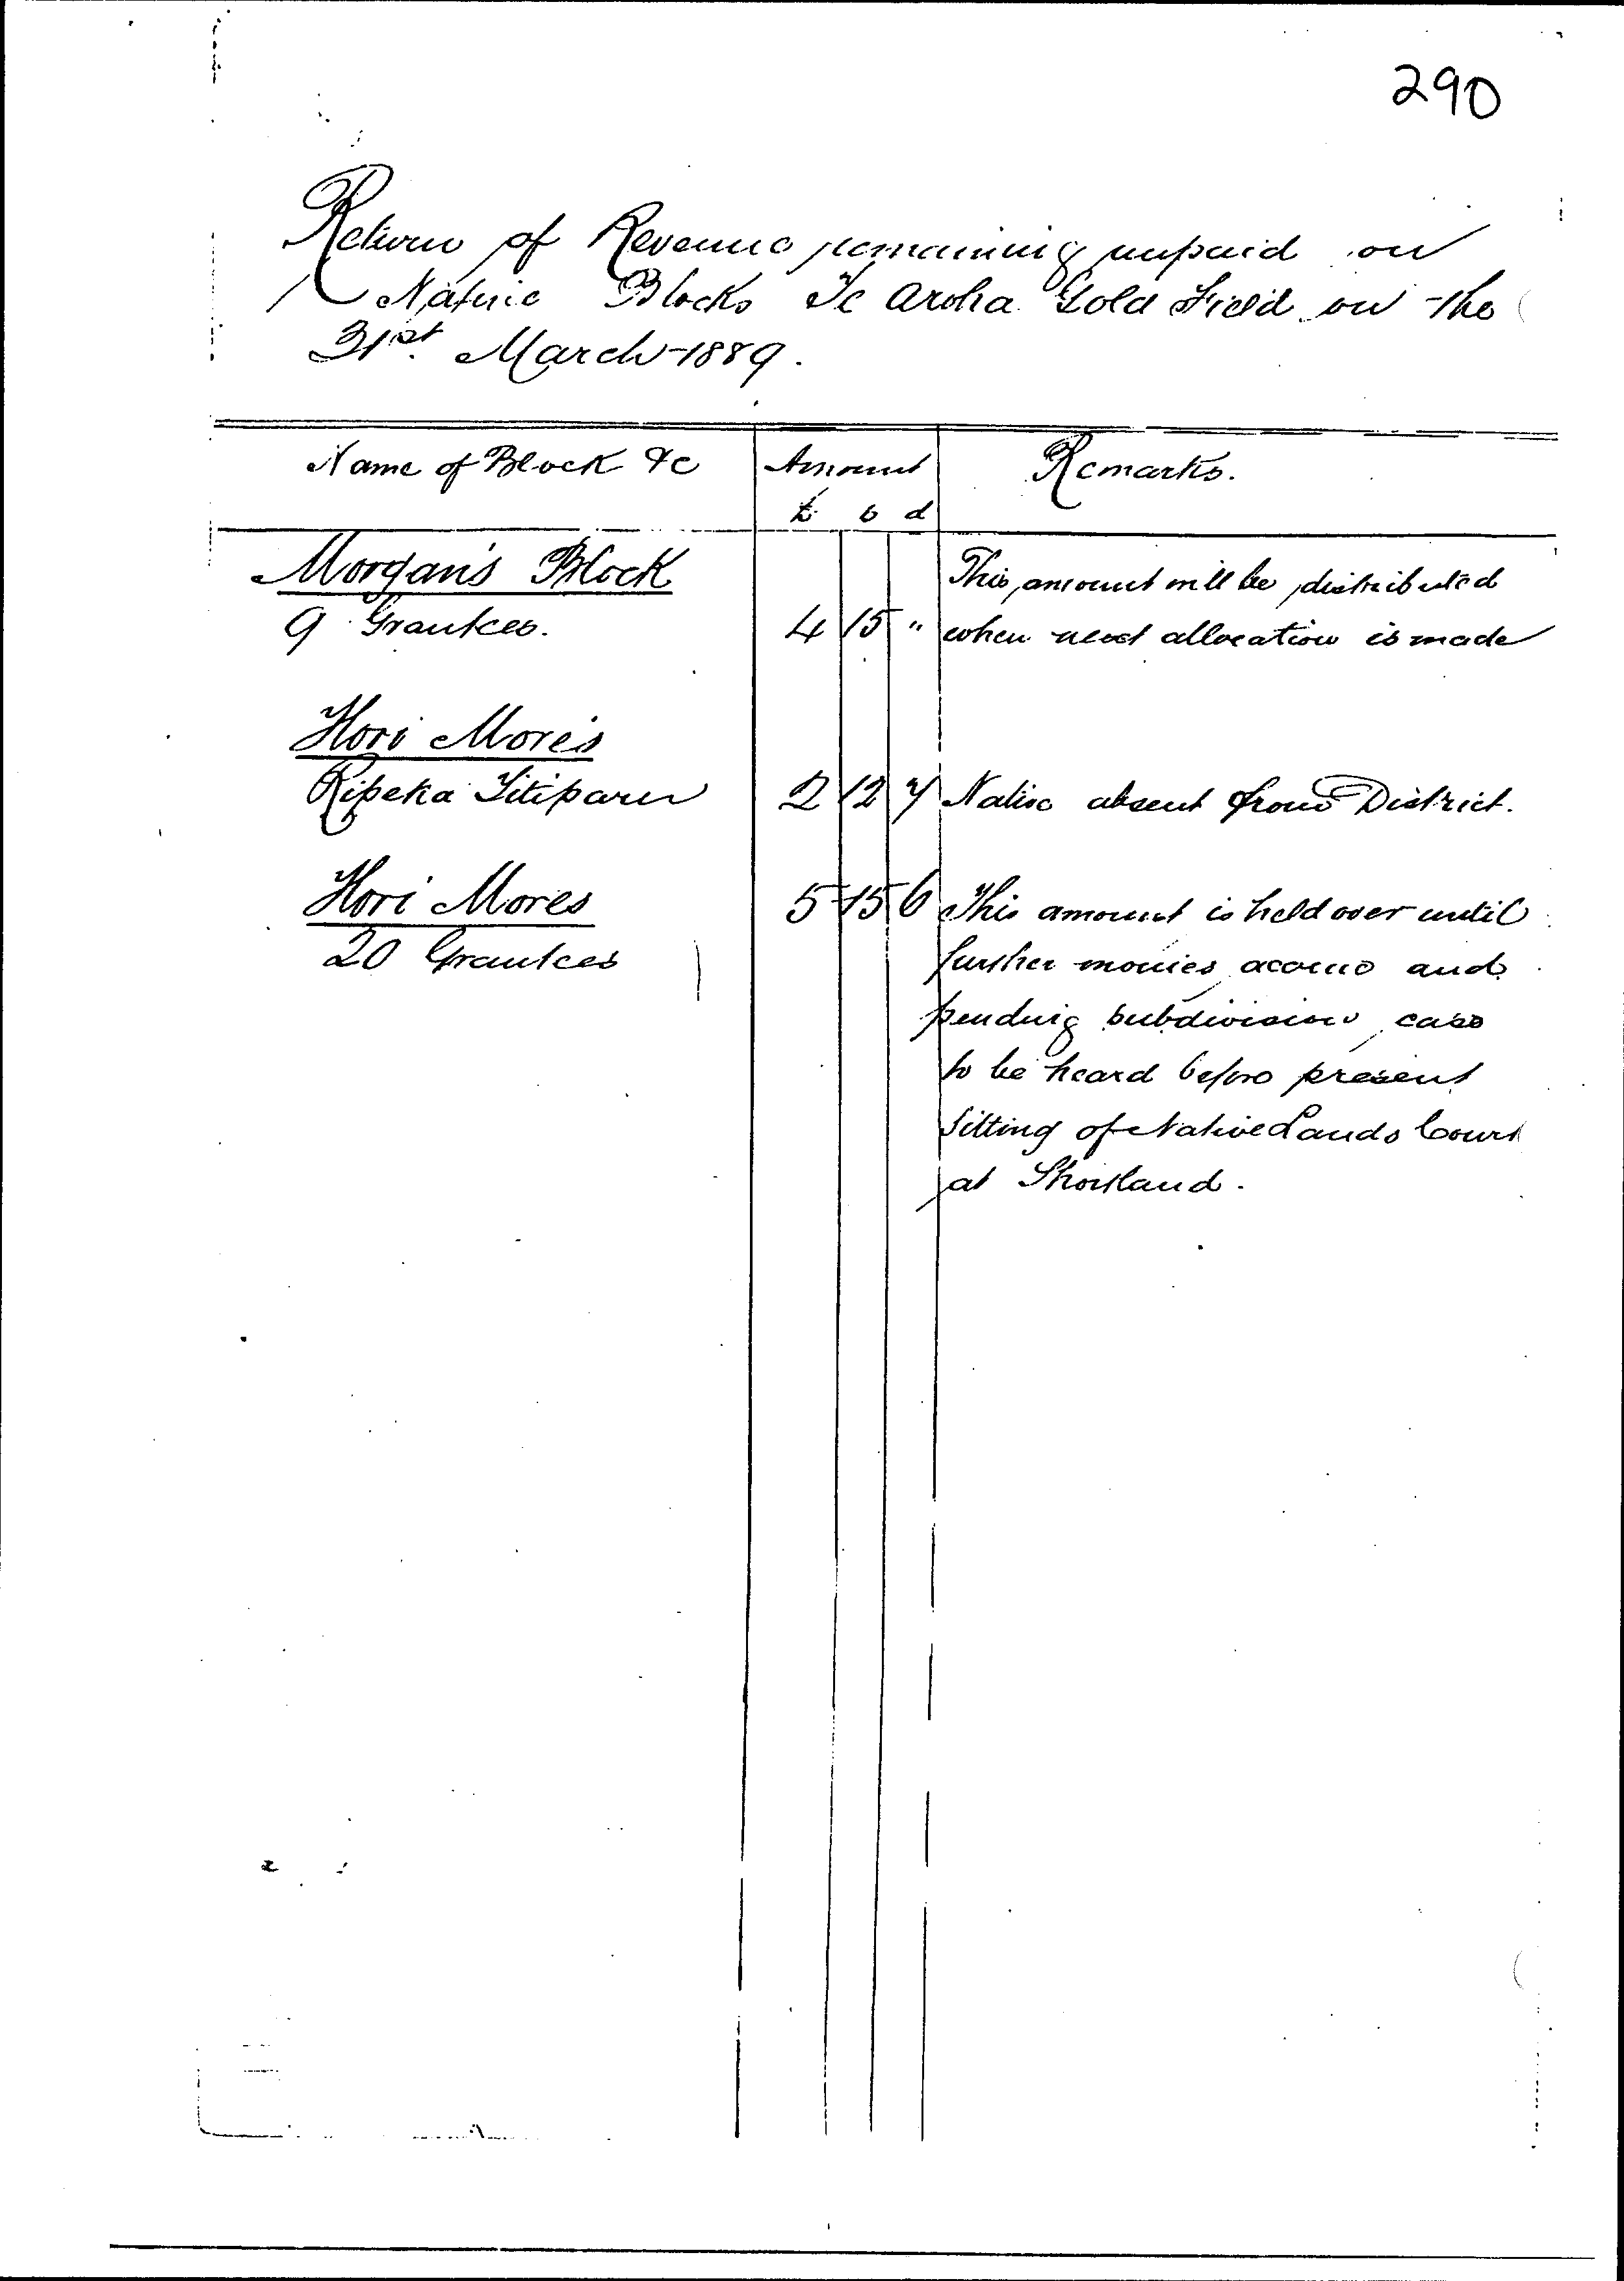 290
Return of Revenue remaining unpaid on
Native Blocks Te Aroha Gold Field on the
31st. March 1889.
Name of Block &c Amount Remarks.
£ s d
Morgan's Block This amount will be distributed
9 Grantees. 4 15 " when next allocation is made
Hori More's
Ripeka Titiparu 2 12 7 Native absent from District.
Hori Mores 5 15 6 This amount is held over until
20 Grantees further monies accrue and
pending subdivision case
to be heard before present
Sitting of Native Lands Court
at Shortland.